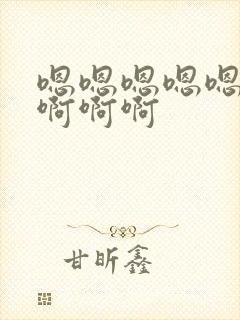 嗯嗯嗯嗯嗯
啊啊啊
甘昕鑫